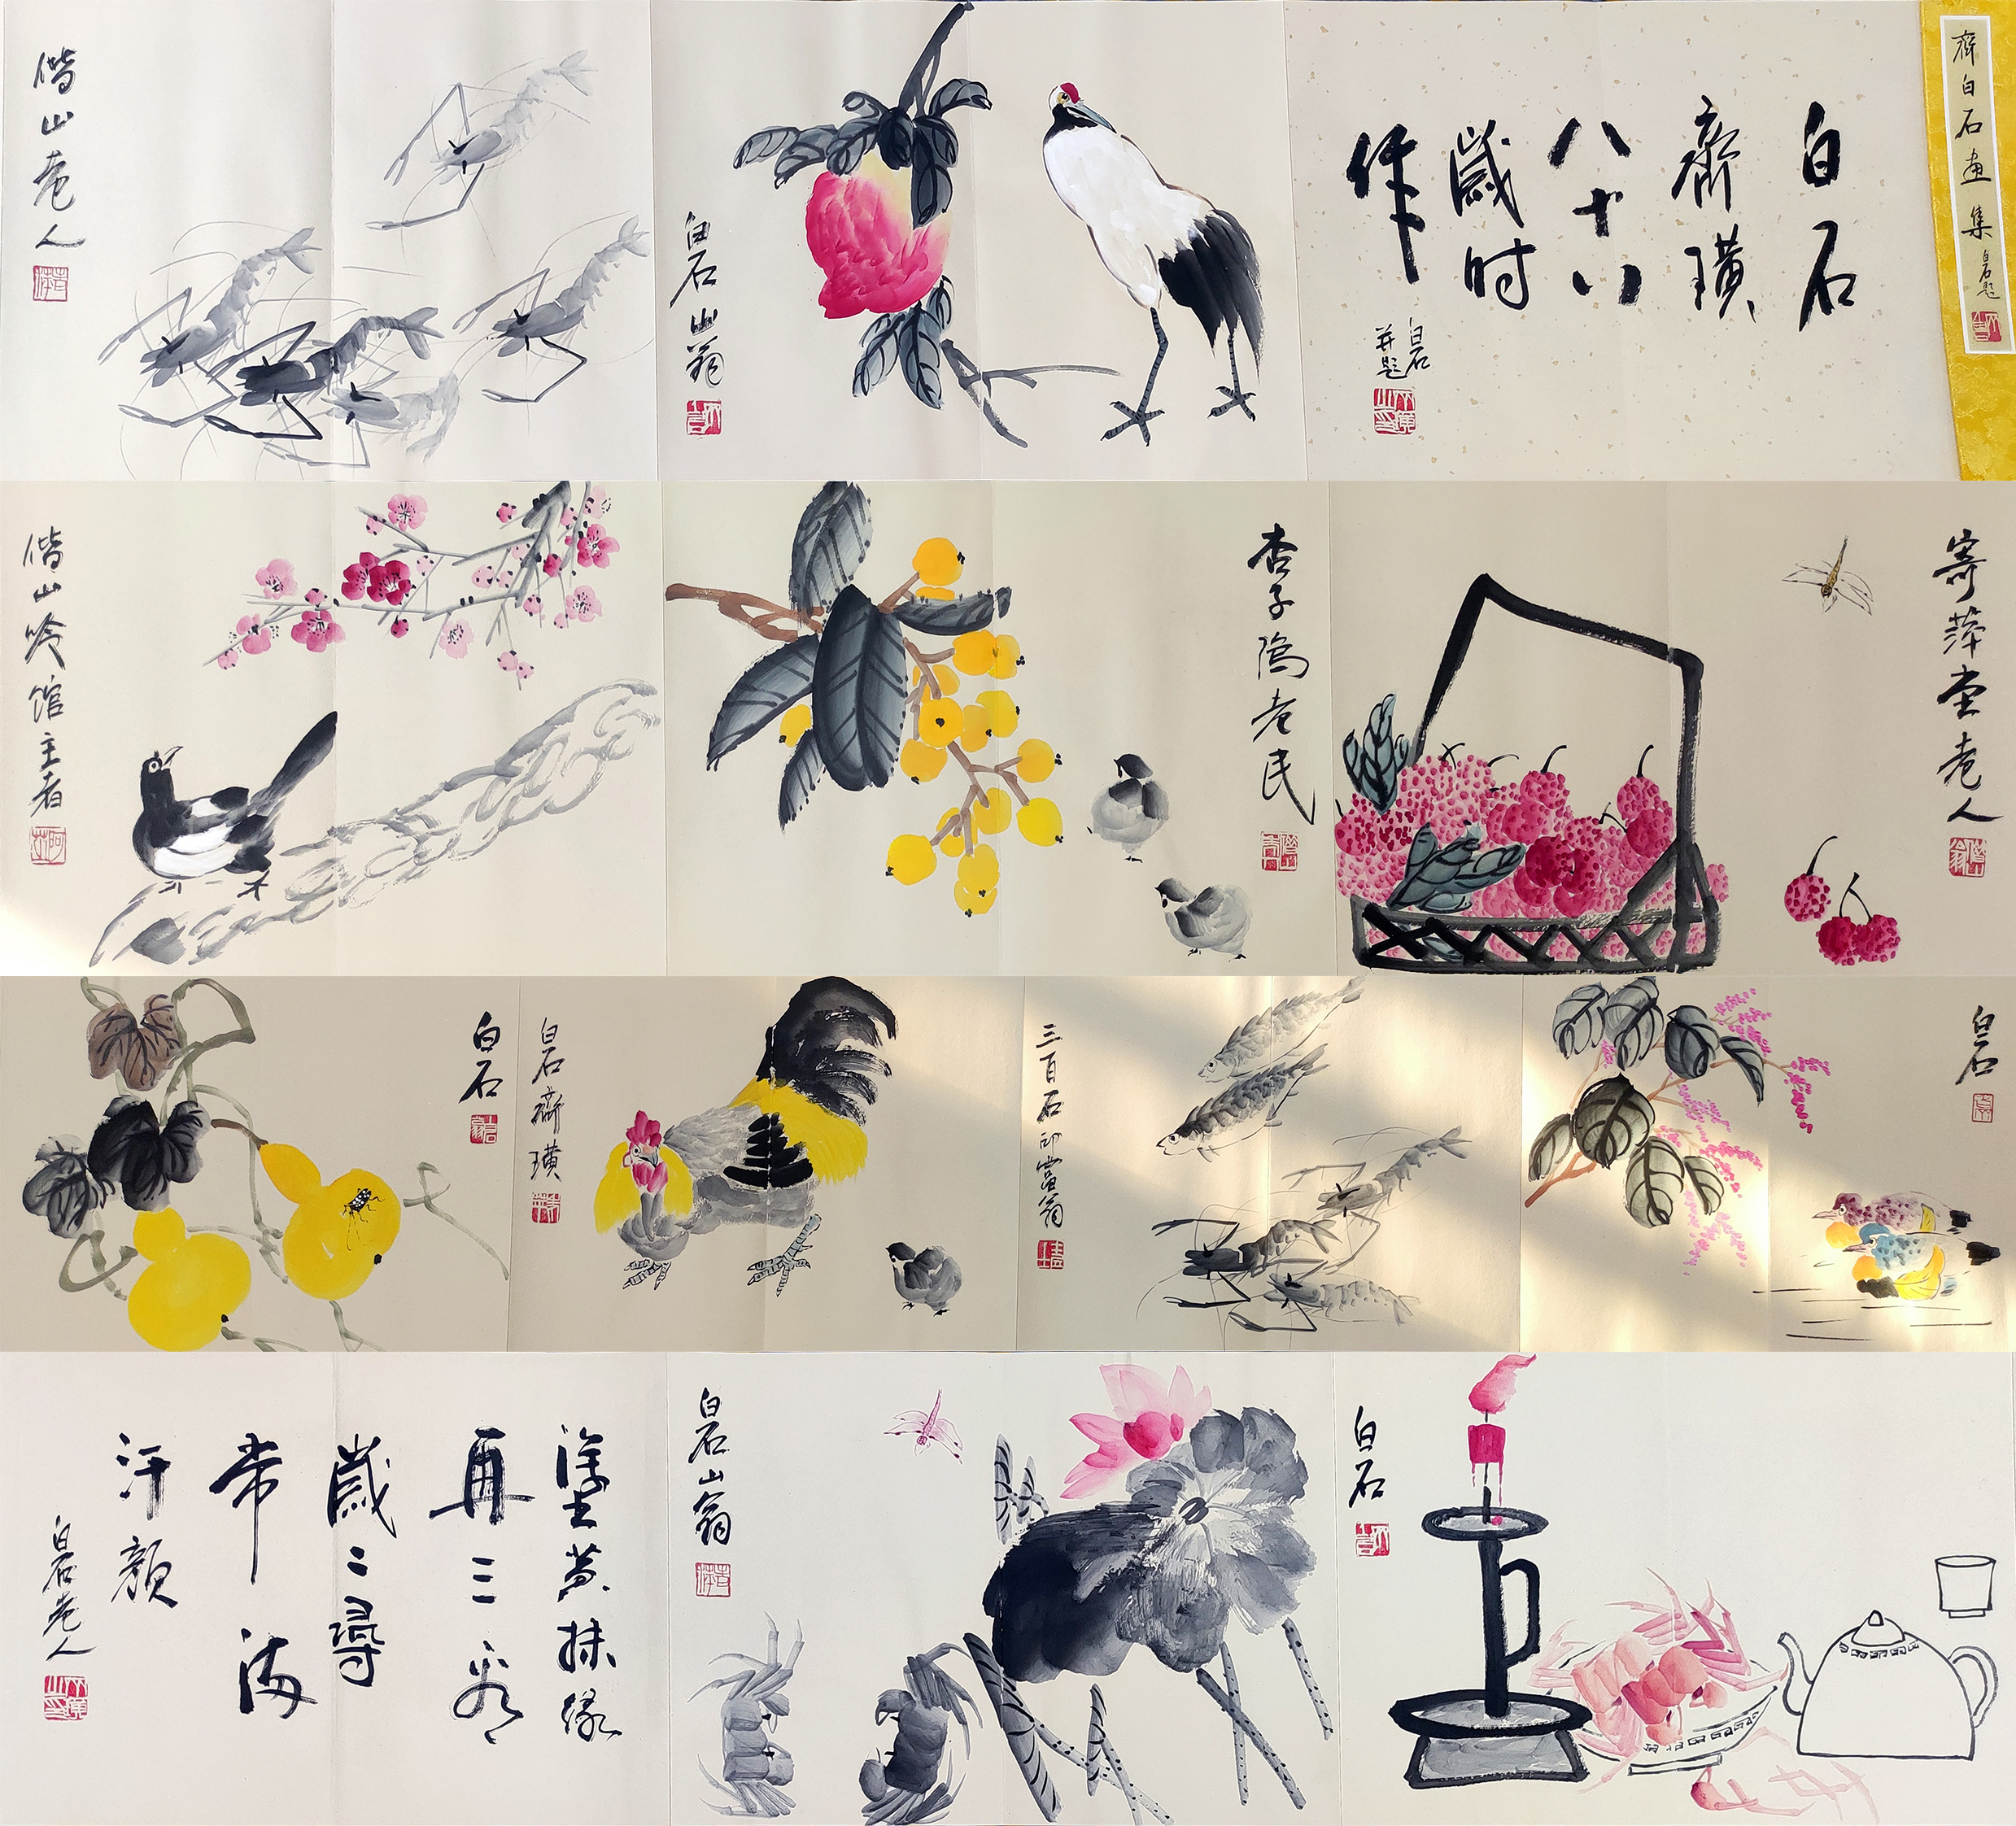 齊白石画集
白石题
白石
齊璜
八十八
歲时
作
白石
并题
白石山翁
借山老人
寄萍堂老人
杏子隖老民
借山吟馆主者
白石
三百石印富翁
白石齊璜
白石
白石
白石山翁
塗黄抹绿
再三看
歲〻尋
常海
汗颜
白石老人